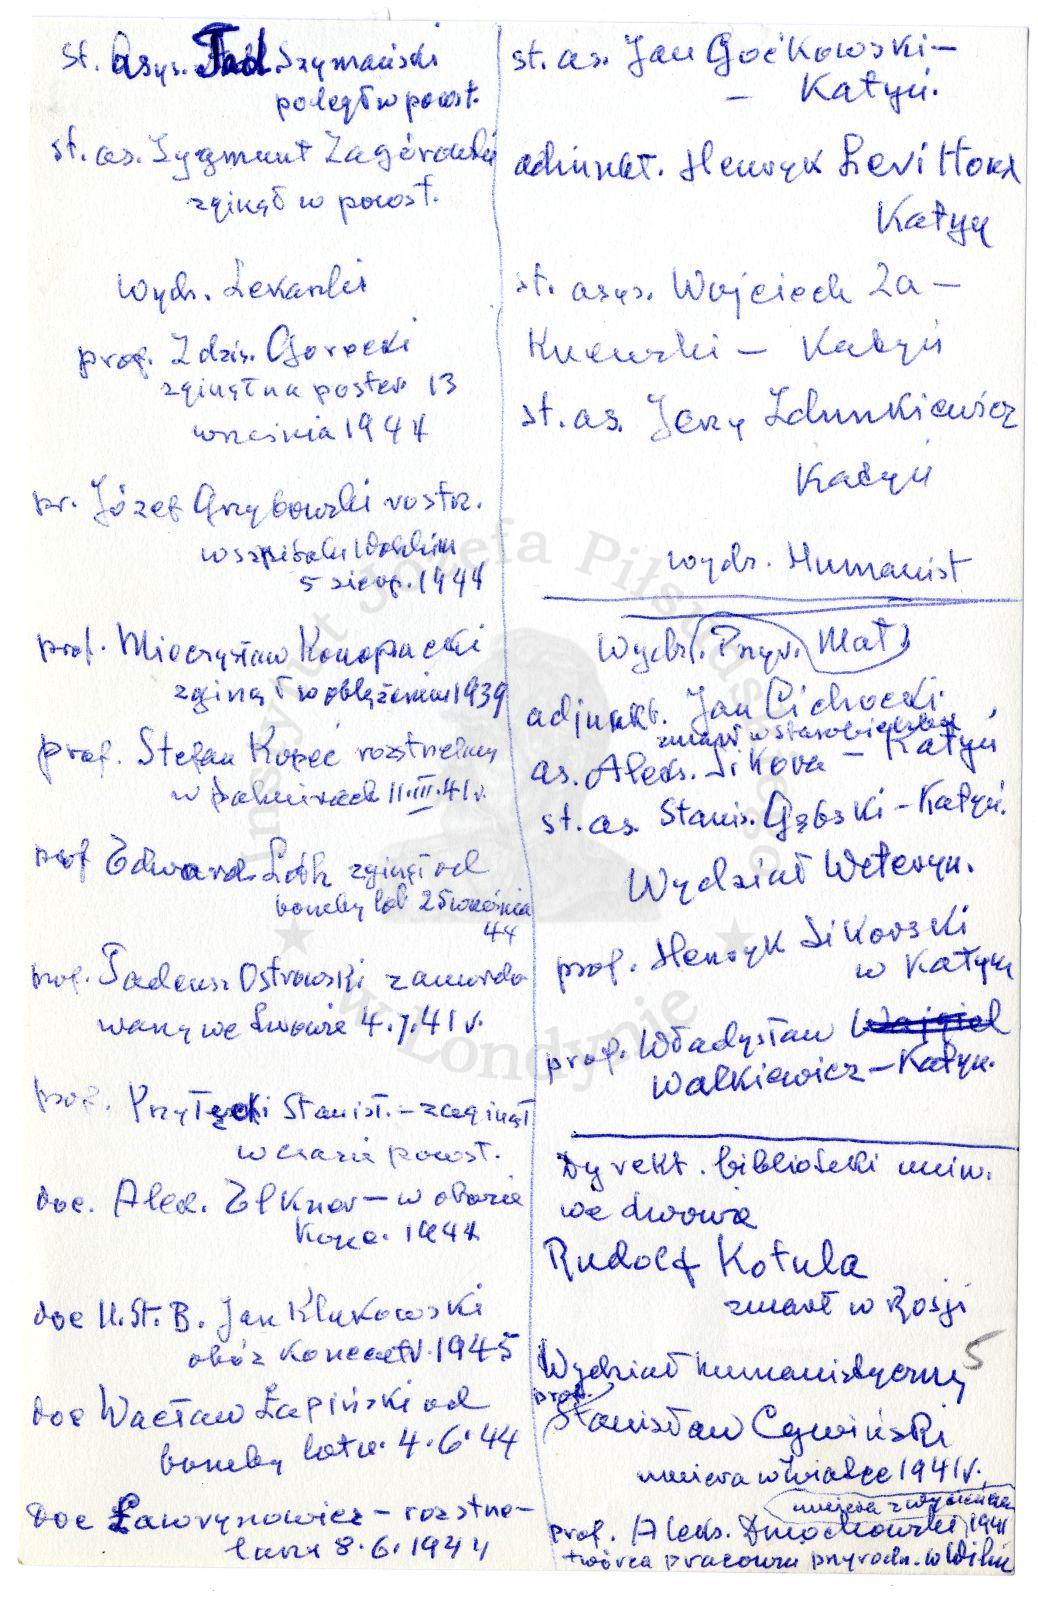 st. Asys. Tad. Szymański
poległ w powst.
st. as. Zygmunt Zagórowski
zginął w powst.
Wydz. Lekarski
prof. Zdzis. Gorecki
zginął na poster. 13
września 1944
pr. Józef Grzybowski rostrz.
w szpitalu Wolskim
5 sierp. 1944
prof. Mieczysław Konopacki
zginął w oblężeniu 1939
prof. Stefan Kopeć rozstrzelany
w Palmirach 11.III.41 r.
prof Edward Loth zginął od
bomby lot 25 września
44
prof. Tadeusz Ostrowski zamordo
wany we Lwowie 4.7.41 r.
prof. Przyłęcki Stanisł. – zaginął
w czasie powst.
doc. Alex. Elkner – w obozie
konc. 1944
doc U.St.B. Jan Klukowski
obóz koncentr. 1945
doc Wacław Łapiński od
bomby lotn. 4.6.44
doc Ławrynowicz – rozstrze-
lany 8.6.1944
st. as. Jan Goćkowski –
– Katyń.
adiunkt. Henryk Levittoux
Katyń
st. asys. Wojciech Za-
Kuewski – Katyń
st. as. Jerzy Zdunkiewicz
Katyń
wydz. Humanist
Wydz. Przyr. Mat.
adjunkt. Jan Cichocki
zmarł w Starobielsku
as. Aleks. Sikora – Katyń
st. as. Stanis. Gąbski – Katyń.
Wydział Weteryn.
prof. Henryk Sikorski
w Katyniu
prof. Władysław
Walkiewicz – Katyń.
Dyrekt. biblioteki uniw.
we Lwowie
Rudolf Kotula
zmarł w Rosji
5
Wydział humanistyczny
prof.
Stanisław Cywiński
umiera w Wiatce 1941 r.
umiera z wycieńczenia
prof. Aleks. Dmochowski 1941
twórca pracowni przyrodn. w Wilnie
Instytut Józefa Piłsudskiego
w Londynie